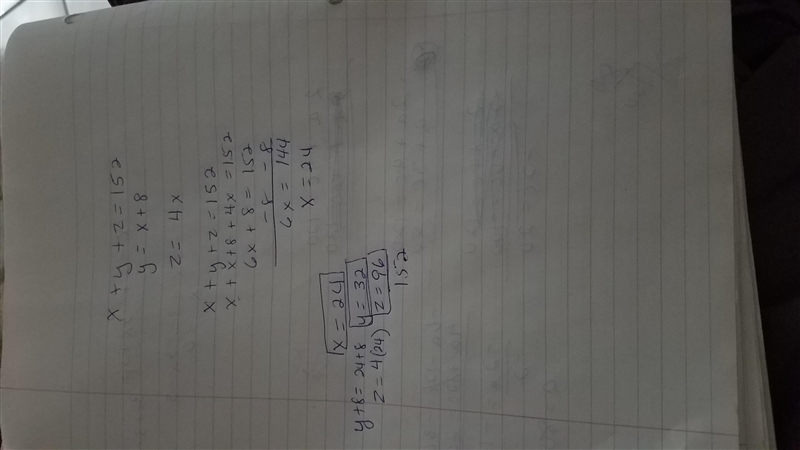 x + y + z = 152
y = x + 8
z = 4x
x + y + z = 152
x + x + 8 + 4x = 152
6x + 8 = 152
- 8 - 8
6x = 144
x = 24
x = 24
y + 8 = 24 + 8 y = 32
z = 4(24) z = 96
152